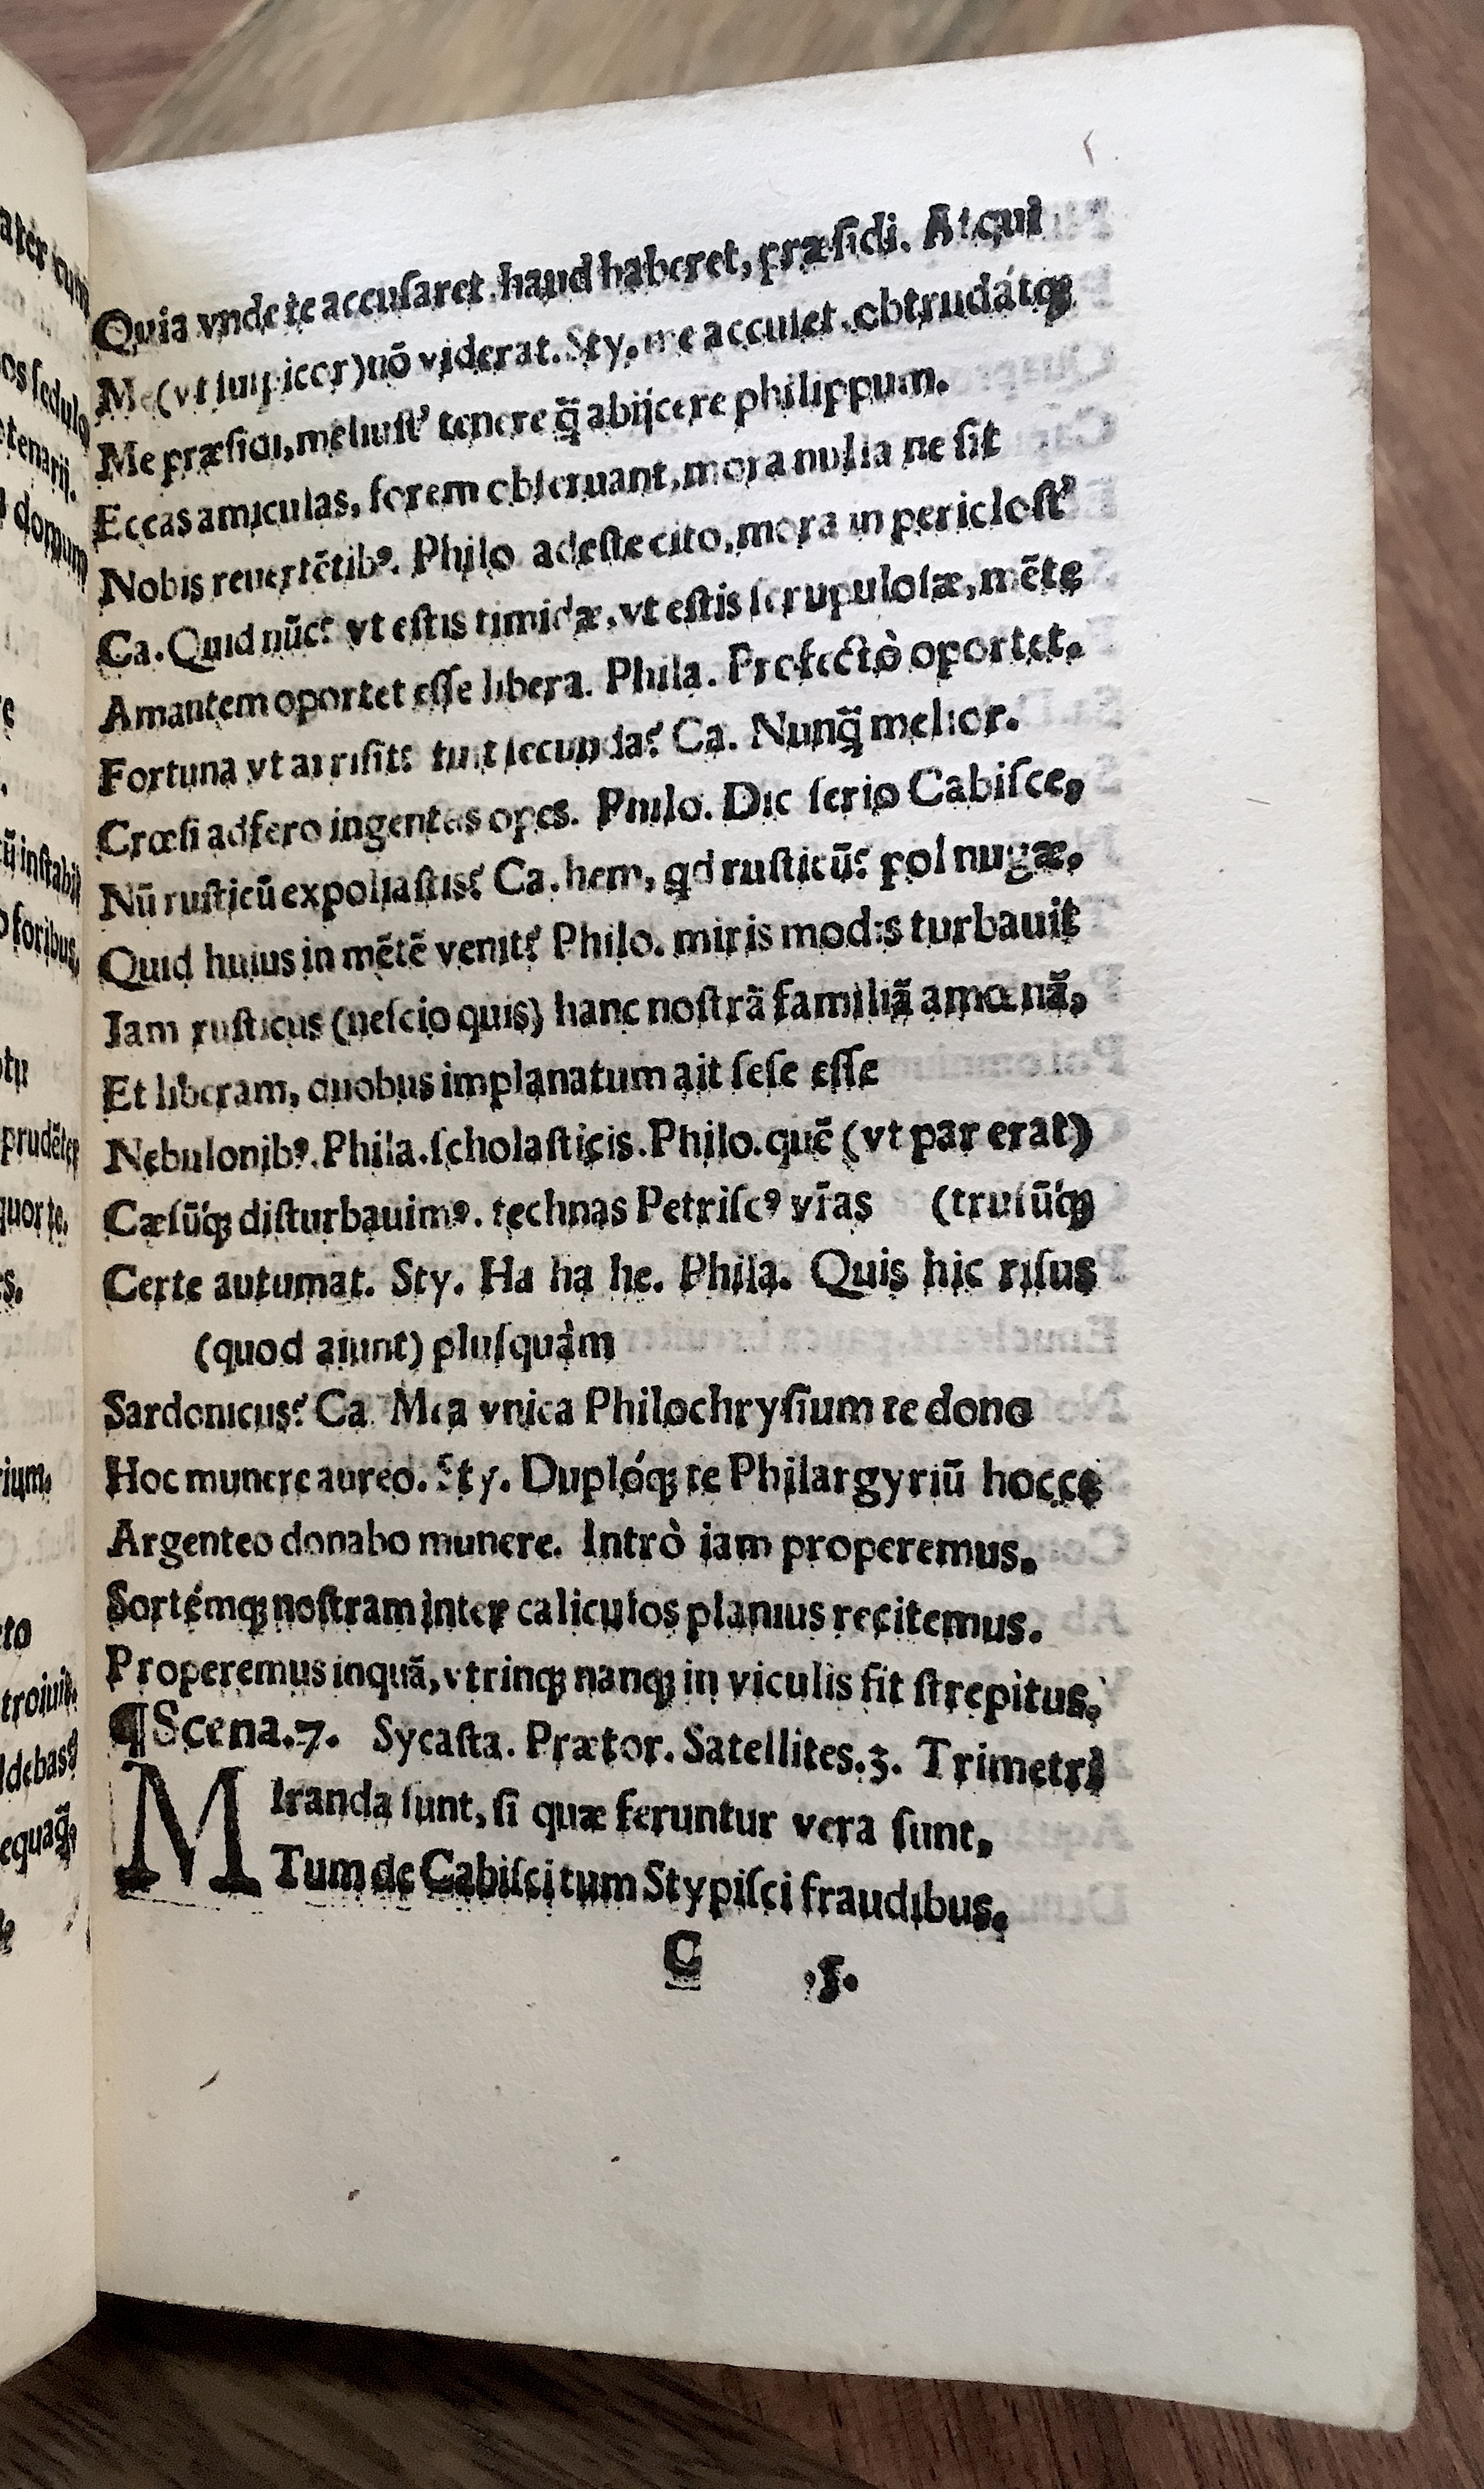 Quia vnde te accuſaret haud haberet, præſidi. Atqui
Me (vt ſuſpicor) nō viderat. Sty. me accuſet, obtrudátqꝫ
Me præſidi, meliuſt’ tenere q̄̃ abijcere philippum.
Eccas amiculas, forem obſeruant, mora nulla ne ſit
Nobis reuertētibꝰ. Philo adeſte cito, mora in pericloſt’
Ca. Quid nūc? vt eſtis timidæ, vt eſtis ſcrupuloſæ, mēte
Amantem oportet eſſe libera. Phila. Profectò oportet.
Fortuna vt arriſit? fuit ſecunda? Ca. Nunq̃ melior.
Crœſi adfero ingentes opes. Philo. Dic ſerio Cabiſce,
Nū ruſticū expoliaſtis? Ca. hem, qd ruſticū? pol nugæ.
Quid huius in mētē venit? Philo. miris modis turbauit
Iam ruſticus (neſcio quis) hanc noſtrā familiā amœnā,
Et liberam, duobus implanatum ait ſeſe eſſe
Nebulonibꝰ. Phila. ſcholaſticis. Philo. quē (vt par erat)
Cæſūqꝫ diſturbauimꝰ. technas Petriſcꝰ vr̄as (truſūqꝫ
Certe autumat. Sty. Ha ha he. Phila. Quis hic riſus
(quod aiunt) pluſquàm
Sardonicus? Ca Mea vnica Philochryſium te dono
Hoc munere aureo. Sty. Duplóqꝫ te Philargyriū hocce
Argenteo donabo munere. Intrò iam properemus.
Sortémqꝫ noſtram inter caliculos planius recitemus.
Properemus inquā, vtrinqꝫ nanqꝫ in viculis fit ſtrepitus.
¶Scena.7. Sycaſta. Prætor. Satellites.3. Trimetri
MIranda ſunt, ſi quæ feruntur vera ſunt,
Tum de Cabiſci tum Stypiſci fraudibus.
C .5.